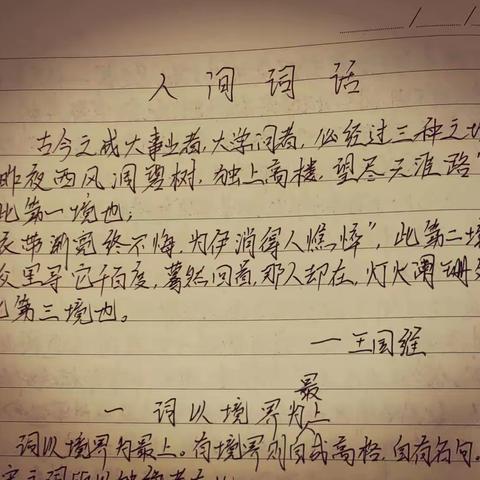 人间词话
古今之成大事业者、大学问者，必经过三种之境
昨夜西风凋碧树，独上高楼，望尽天涯路”
此第一境也；
衣带渐宽终不悔，为伊消得人憔悴”，此第二境
里寻它千百度，蓦然回首，那人却在，灯火阑珊
第三境也。
一王国维
一 词以境界为最上
词以境界为最上。有境界则自成高格，自有名句。